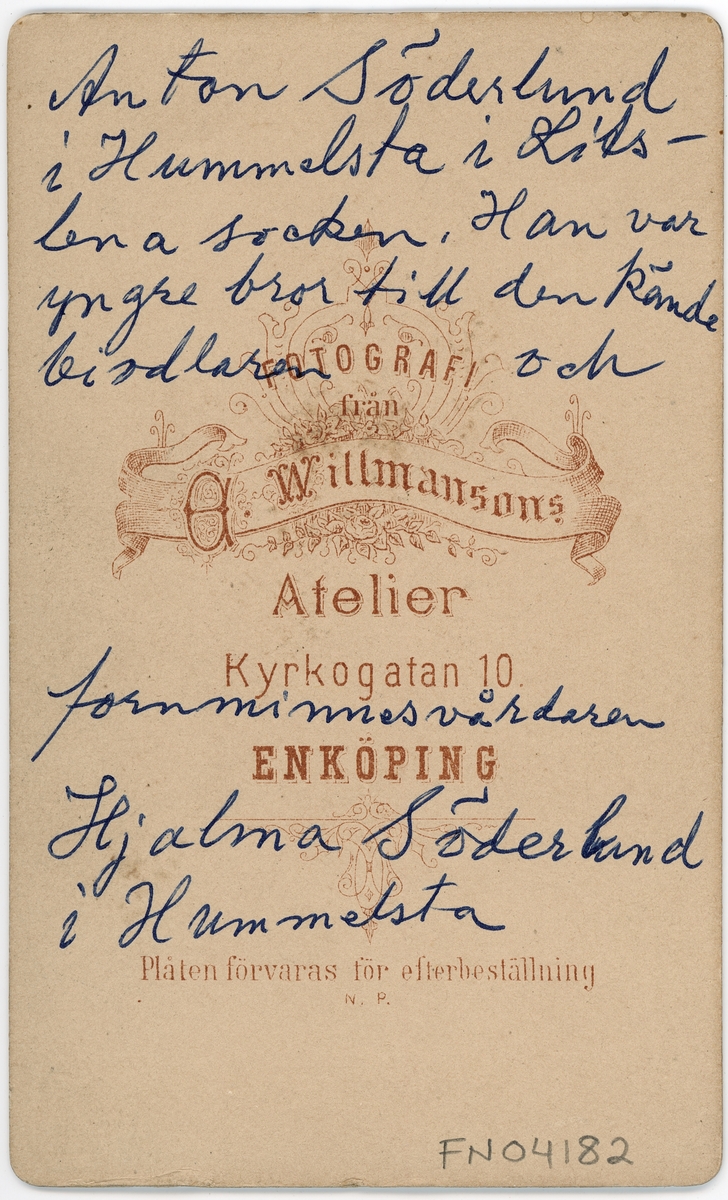 Anton Söderlund
i Hummelsta i Lits-
lena socken. Han var
yngre bror till den kände
biodlaren och
FOTOGRAFI
från
A. Willmansons
Atelier
Kyrkogatan 10.
fornminnesvårdaren
ENKÖPING
Hjalma Söderlund
i Hummelsta
Plåten förvaras för efterbeställning
N. P.
FN04182